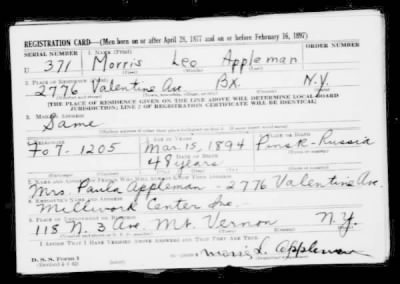 REGISTRATION CARD—(Men born on or after April 28, 1877 and on or before February 16, 1897)
SERIAL NUMBER 1. NAME (Print) ORDER NUMBER
U 371 Morris Leo Appleman
2. PLACE OF RESIDENCE (Print)
2776 Valentine Ave Bx. N.Y.
[THE PLACE OF RESIDENCE GIVEN ON THE LINE ABOVE WILL DETERMINE LOCAL BOARD
JURISDICTION; LINE 2 OF REGISTRATION CERTIFICATE WILL BE IDENTICAL]
3. MAILING ADDRESS
Same
4. TELEPHONE 5. AGE IN YEARS 6. PLACE OF BIRTH
Fo 7-1205 Mar. 15, 1894 Pinsk-Russia
DATE OF BIRTH
48 years
7. NAME AND ADDRESS OF PERSON WHO WILL ALWAYS KNOW YOUR ADDRESS
Mrs. Paula Appleman - 2776 Valentine Ave.
8. EMPLOYER'S NAME AND ADDRESS
Millwork Center Inc.
9. PLACE OF EMPLOYMENT OR BUSINESS
118 N. 3 Ave. Mt. Vernon N.Y.
I AFFIRM THAT I HAVE VERIFIED ABOVE ANSWERS AND THAT THEY ARE TRUE.
D. S. S. Form 1
Morris L. Appleman